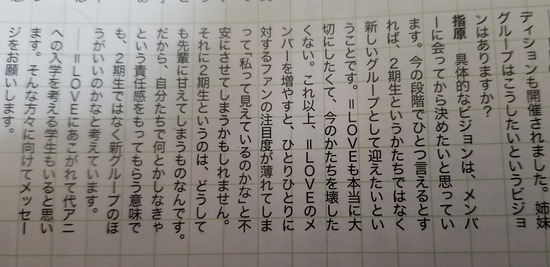 ディションも開催されました。姉妹
グループはこうしたいというビジョ
ンはありますか?
指原 具体的なビジョンは、メンバ
ーに会ってから決めたいと思ってい
ます。今の段階でひとつ言えるとす
れば、2期生というかたちではなく
新しいグループとして迎えたいとい
うことです。=LOVEも本当に大
切にしたくて、今のかたちを壊した
くない。これ以上、=LOVEのメ
ンバーを増やすと、ひとりひとりに
対するファンの注目度が薄れてしま
って、「私って見えているのかな」と不
安にさせてしまうかもしれません。
それに2期生というのは、どうして
も先輩に甘えてしまうものなんです。
だから、自分たちで何とかしなきゃ
という責任感をもってもらう意味で
も、2期生ではなく新グループのほ
うがいいのかなと考えています。
―=LOVEにあこがれて代アニ
への入学を考える学生もいると思い
ます。そんな方々に向けてメッセー
ジをお願いします。